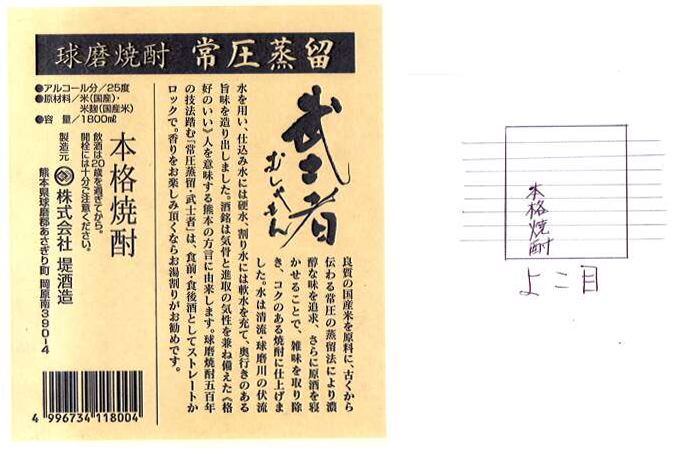 球磨焼酎 常圧蒸留
●アルコール分/25度
●原材料/米(国産)・
米麹(国産米)
●容 量/1800㎖
武士者
むしゃもん
良質の国産米を原料に、古くから
伝わる常圧の蒸留法により濃
醇な味を追求、さらに原酒を寝
かせることで、雑味を取り除
き、コクのある焼酎に仕上げま
した。水は清流・球磨川の伏流
水を用い、仕込み水には硬水、割り水には軟水を充て、奥行きのある
旨味を造り出しました。酒銘は気骨と進取の気性を兼ね備えた《格
好のいい》人を意味する熊本の方言に由来します。球磨焼酎五百年
の技法踏む『常圧蒸留・武士者』は、食前・食後酒としてストレートか
ロックで。香りをお楽しみ頂くならお湯割りがお勧めです。
本格焼酎
飲酒は20歳を過ぎてから。
開栓には十分ご注意ください。
製造元 株式会社 堤酒造
熊本県球磨郡あさぎり町 岡原南390-4
4 996734 118004
本格焼酎
よこ目